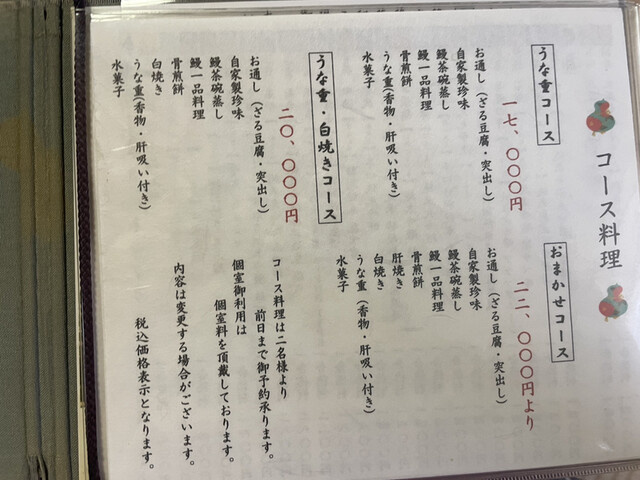 コース料理
うな重コース
一七、〇〇〇円
お通し（ざる豆腐・突出し）
自家製珍味
鰻茶碗蒸し
鰻一品料理
骨煎餅
うな重（香物・肝吸い付き）
水菓子
おまかせコース
二二、〇〇〇円より
お通し（ざる豆腐・突出し）
自家製珍味
鰻茶碗蒸し
鰻一品料理
骨煎餅
肝焼き
白焼き
うな重（香物・肝吸い付き）
水菓子
うな重・白焼きコース
二〇、〇〇〇円
お通し（ざる豆腐・突出し）
自家製珍味
鰻茶碗蒸し
鰻一品料理
骨煎餅
白焼き
うな重（香物・肝吸い付き）
水菓子
コース料理は二名様より
前日まで御予約承ります。
個室御利用は
個室料を頂戴しております。
内容は変更する場合がございます。
税込価格表示となります。